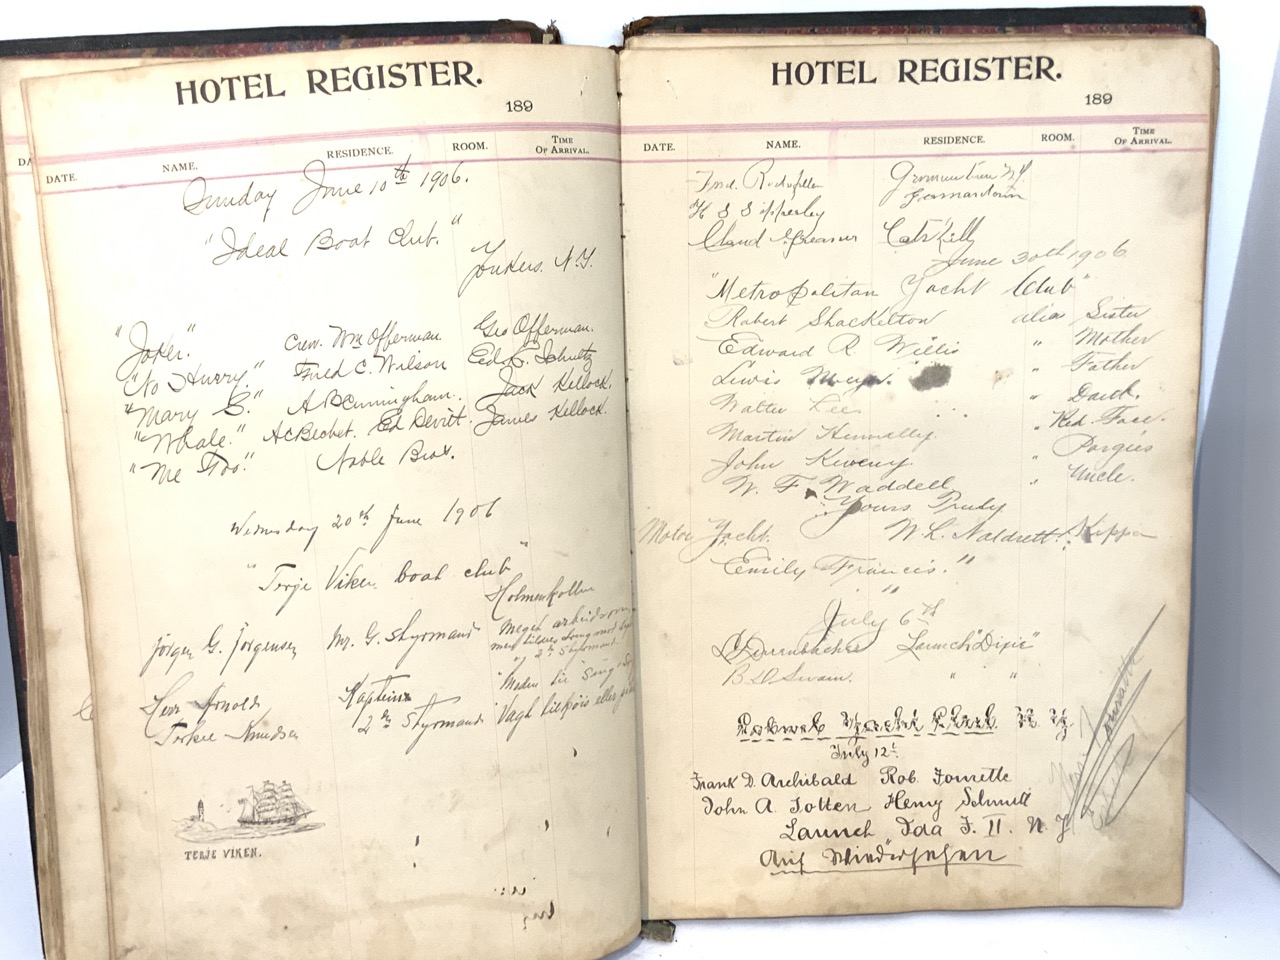 HOTEL REGISTER.
189
DATE. NAME. RESIDENCE. ROOM. TIME OF ARRIVAL.
Sunday June 10th 1906.
"Ideal Boat Club."
Yonkers. N.Y.
"Joker." Crew. Wm Offerman. Geo Offerman.
"No Hurry." Fred C. Wilson Ed. C. Schultz
"Mary C." A B Cunningham. Jack Kellock.
"Whale." A C Bechet. Ed Devitt. James Kellock.
"Me Too." Noble Bros.
Wednesday 20th June 1906
"Terje Viken boat club"
Holmenkollen
Jørgen G. Jørgensen Mr. G. Styrmand Meget
2den Styrmand
Herr Arnold Kaptein
Terkel Knudsen 2den Styrmand
TERJE VIKEN.
HOTEL REGISTER.
189
DATE. NAME. RESIDENCE. ROOM. TIME OF ARRIVAL.
Germantown
Catskill
June 30th 1906
"Metropolitan Yacht Club"
Robert Shackelton alia Sister
Edward R Willis " Mother
Lewis " Father
Walter Lee " Dautt.
Martin Hennelly. " Red. Face.
John Kiveny. Porgies
W. F. Waddell " Uncle.
Yours Truly
Motor Yacht. W. L. Naldrett: Skipper
Emily Francis."
" "
July 6th
Launch "Dixie"
B. D. Swain. " "
Yacht Club N. Y.
July 12th
Frank D. Archibald Rob. Fourette
John A. Totten Henry Schmitt
Launch Ida F. II. N. Y.